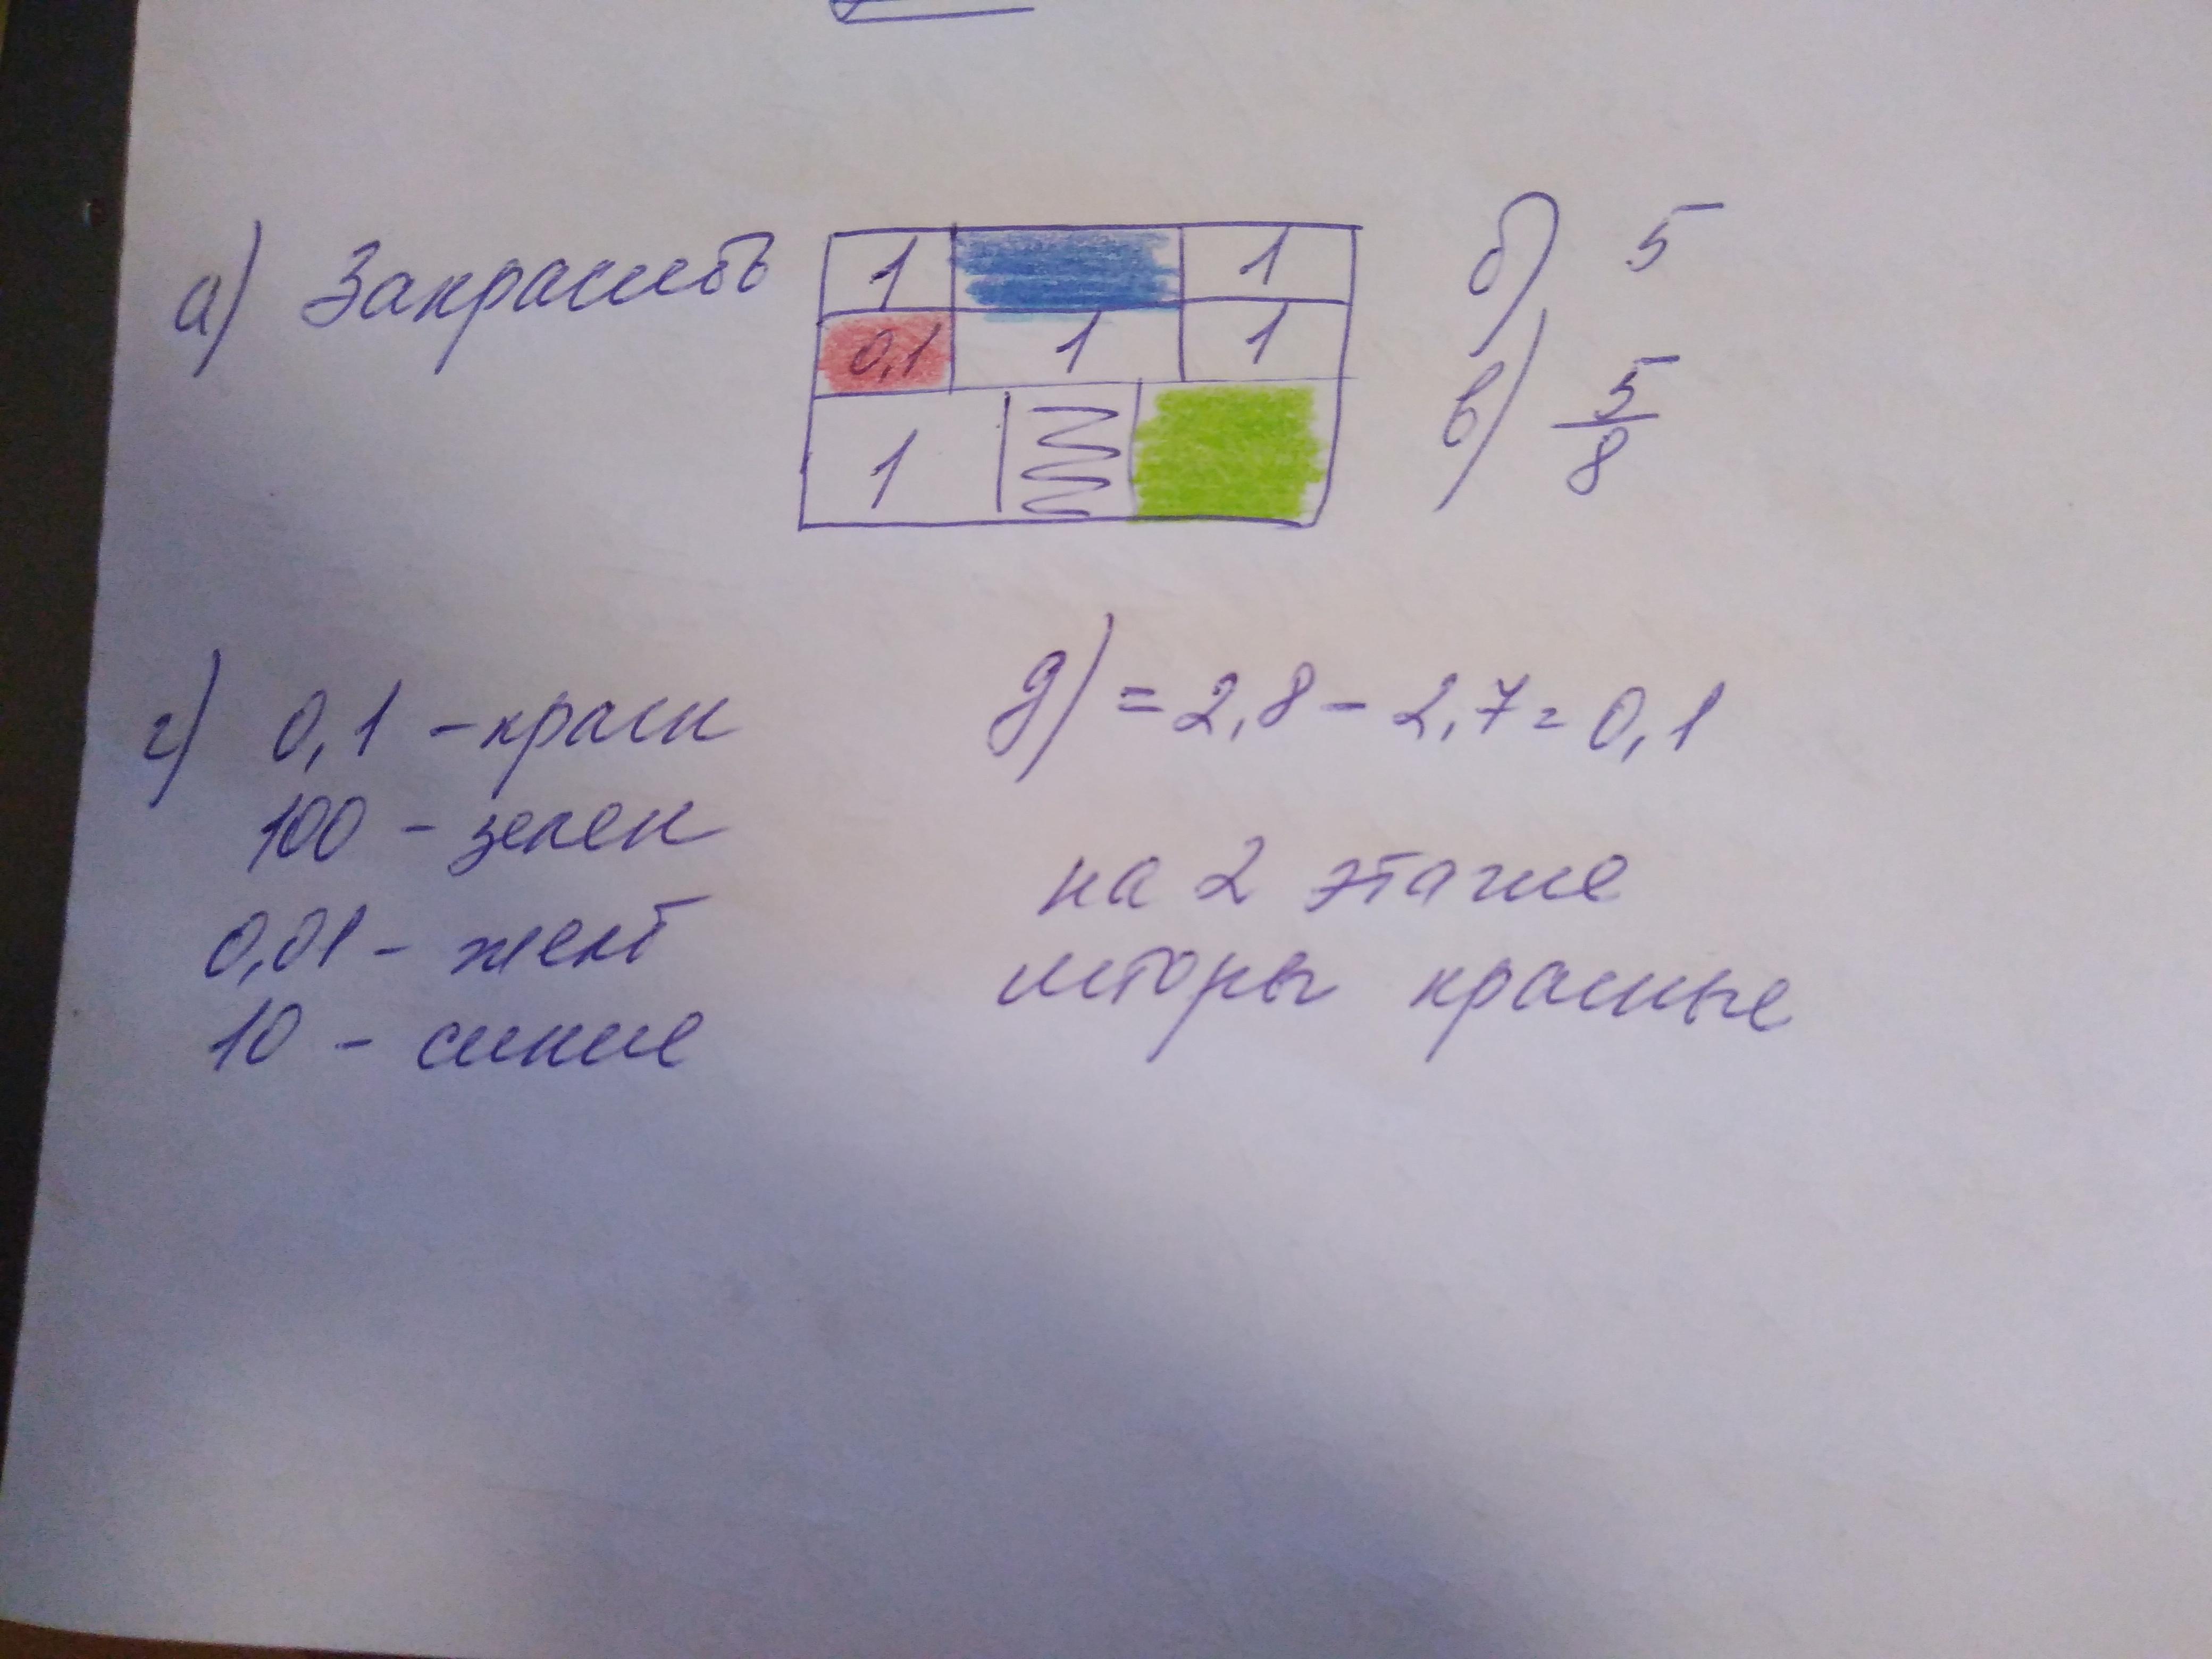 а) Закрасить
1 1
0,1 1 1
1
б) 5
в) 5/8
г) 0,1 - красн
100 - зелен
0,01 - желт
10 - синие
д) = 2,8 - 2,7 = 0,1
на 2 этаже
шторы красные